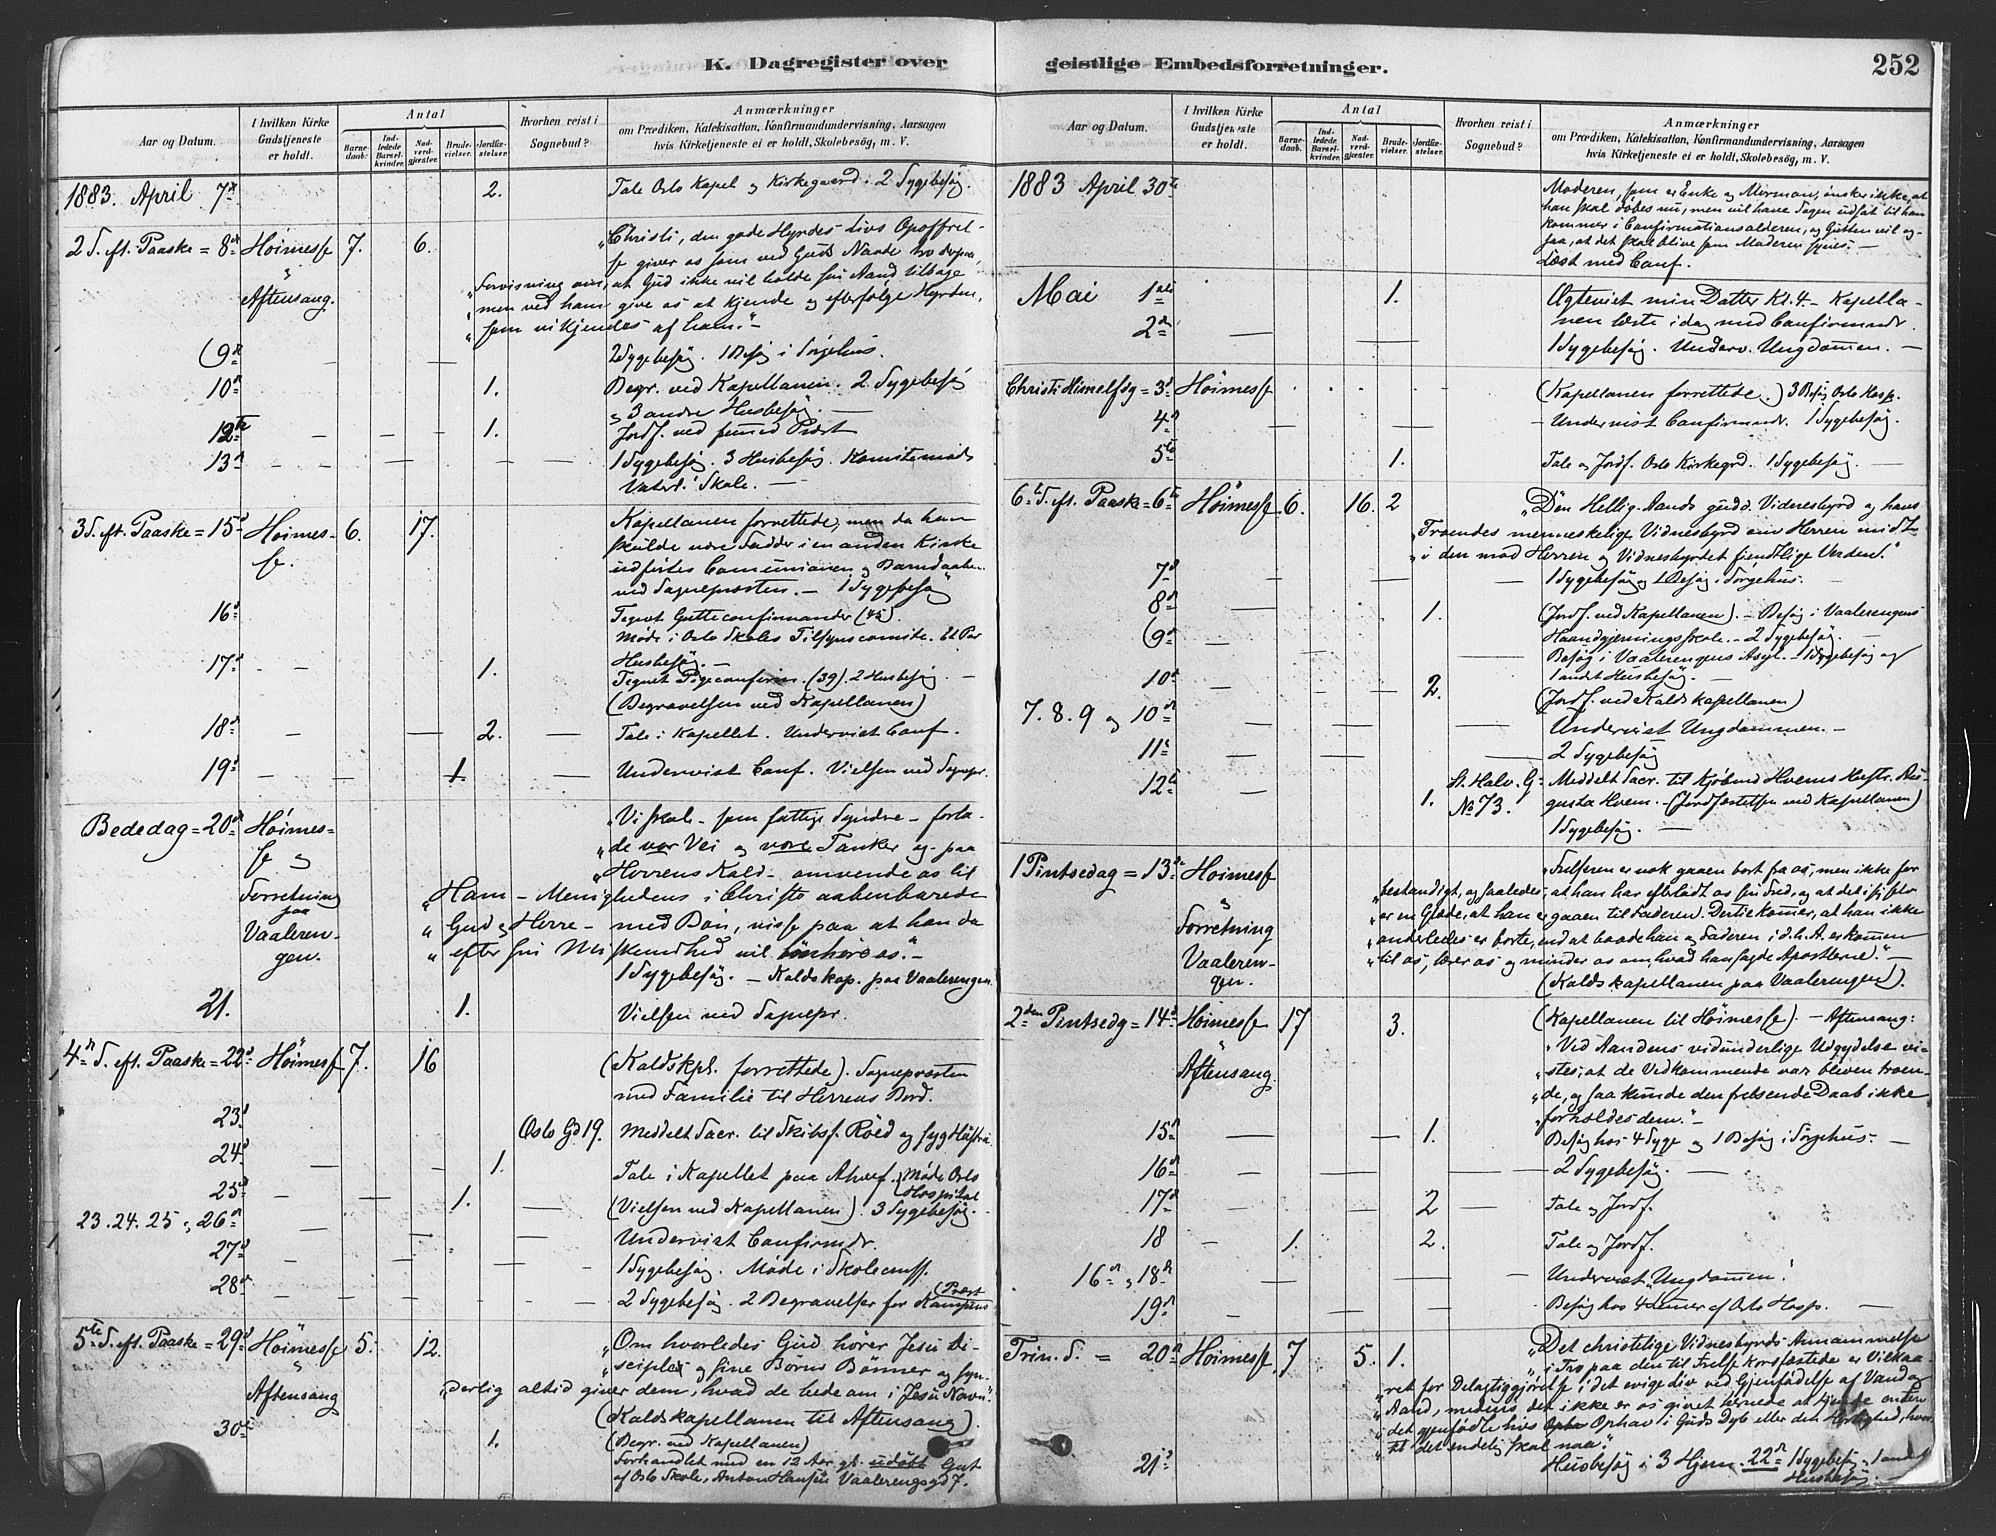 K. Dagregister over
Aar og Datum.
I hvilken Kirke Gudstjeneste er holdt.
Antal
Barne-daab.
Ind-ledede Barsel-kvinder.
Nad-verd-gjester.
Brude-vielser.
Jordfæ-stelser.
Hvorhen reist i Sognebud?
Anmærkninger
om Prædiken, Katekisation, Konfirmandundervisning, Aarsagen
hvis Kirketjeneste ei er holdt, Skolebesög, m. V.
1883. April 7de 2. Tale Oslo Kapel og Kirkegaard. 2 Sygebesøg.
2 S. eft. Paaske = 8de Høimesse 7. 6. "Christi, den gode Hyrdes Livs Opoffrel-
se giver os som ved Guds Naade tro derpaa,
Aftensang. "Forvisning om, at Gud ikke vil holde sin Aand tilbage
"men ved ham give os at kjende og efterfølge Hyrden,
"som vi kjendes af ham."
(9de 2 Sygebesøg. 1 Besøg i Sørgehus.
10de 1. Begr. ved Kapellanen. 2 Sygebesøg
og 3 andre Husbesøg.
12te 1. Jordf. ved fremmed Præst
13de 1 Sygebesøg. 3 Husbesøg. Komitemøde
Skole.
3 S. eft. Paaske = 15de Høimes- 6. 17. Kapellanen forrettede, men da han
se. skulde være Fadder i en anden Kirke
udførtes Communionen og Barnedaaben
ved Sognepræsten. 1 Sygebesøg
16de Tegnet Gutteconfirmander (45).
Møde i Oslo Skoles Tilsynscomite. Et Par
Husbesøg.
17de 1. Tegnet Pigeconfirm. (39). 2 Husbesøg.
(Begravelsen ved Kapellanen)
18de 2. Tale i Kapellet. Undervist Conf.
19de 1. Undervist Conf. Vielsen ved Sognepr.
Bededag = 20de Høimes- "Vi skal - som fattige Syndre - forla-
se og "de vor Vei og vore Tanker og paa
"Herrens Kald - omvende os til
Forretning "Ham - Menighedens i Christo aabenbarede
paa "Gud og Herre - med Bøn, visse paa at han da
Vaaleren- "efter sin Miskundhed vil bønhøre os."
gen. 1 Sygebesøg. - Kaldskap. paa Vaalerengen.
21. 1. Vielsen ved Sognepr.
4de S. eft. Paaske = 22de Høimesse 7. 16 (Kaldskpl. forrettede). Sognepræsten
med Familie til Herrens Bord.
23de Oslo Gd 19. Meddelt Sacr. til Skibsf. Röed og syg Hustru
24de 1. Tale i Kapellet paa (Møde Oslo
Hospital
25de 1. (Vielsen ved Kapellanen). 3 Sygebesøg.
23. 24. 25 og 26de Undervist Confirmdr.
27de 1 Sygebesøg. Møde i Skolecomss.
28de 2 Sygebesøg. 2 Begravelser for Kampens (Præst
5te S. eft. Paaske = 29de Høimesse 5. 12. "Om hvorledes Gud hører Jesu Di-
"sciples og sine Børns Bønner og syn-
Aftensang "derlig altid giver dem, hvad de bede om i Jesu Navn."
(Kaldskapellanen til Aftensang).
30te 1. (Begr. ved Kapellanen)
Forhandlet med en 12 Aar gl. udøbt Gut
af Oslo Skole, Anton Hansen Vaalerengsgd 7.
geistlige Embedsforretninger.
252
Aar og Datum.
I hvilken Kirke Gudstjeneste er holdt.
Antal
Barne-daab.
Ind-ledede Barsel-kvinder.
Nad-verd-gjester.
Brude-vielser.
Jordfæ-stelser.
Hvorhen reist i Sognebud?
Anmærkninger
om Prædiken, Katekisation, Konfirmandundervisning, Aarsagen
hvis Kirketjeneste ei er holdt, Skolebesög, m. V.
1883 April 30te Moderen, som er Enke og Mormon, ønsker ikke, at
han skal døbes nu, men vil have Sagen udsat til han
kommer i Confirmationsalderen, og Gutten vil og-
saa, at det skal blive som Moderen synes. -
Læst med Conf.
Mai 1ste 1. Ægteviet min Datter Kl. 4. - Kapella-
nen læste i dag med Confirmndr.
2den 1 Sygebesøg. Underv. Ungdommen.
Christi Himmelfsg = 3de Høimesse (Kapellanen forrettede.) 3 Besøg Oslo Hosp.
4de Undervist Confirmndr. 1 Sygebesøg.
5te 1. Tale og Jordf. Oslo Kirkegrd. 1 Sygebesøg.
6te S. eft. Paaske = 6te Høimesse 6. 16. 2 "Den Hellig-Aands gudd. Vidnesbyrd og hans
"Troendes menneskelige Vidnesbyrd om Herren midt
"i den mod Herren og Vidnesbyrdet fiendtlige Verden."
7de 1 Sygebesøg og 1 Besøg i Sørgehus.
8de 1. (Jordf. ved Kapellanen). - Besøg i Vaalerengens
Haandgjerningsskole. - 2 Sygebesøg.
(9de Besøg i Vaalerengens Asyl. - 1 Sygebesøg og
1 andet Husbesøg.
10de 2. (Jordf. ved Kaldskapellanen)
7. 8. 9 og 10de Undervist Ungdommen.
11te 2 Sygebesøg
12te 1. St. Halv. G. No 73. Meddelt Sacr. til Kjøbmd Hvems Hustr. Au-
gusta Hvem. - (Jordfæstelsen ved Kapellanen)
1 Sygebesøg.
1 Pintsedag = 13de Høimesse "Frelseren er nok gaaen bort fra os, men ikke for
"bestandigt, og saaledes, at han har efterladt os sin Fred, og at det i sig selv
"er en Glæde, at han er gaaen til Faderen. Dertil kommer, at han ikke
Forretning "anderledes er borte, end at baade han og Faderen i d. h. A. er kommen
Vaaleren- "til os, lærer os og minder os om, hvad han sagde Apostlerne."
gen. (Kaldskapellanen paa Vaalerengen).
2den Pintsedg = 14de Høimesse 17 3. (Kapellanen til Høimesse). - Aftensang:
"Ved Aandens vidunderlige Udgydelse vi-
Aftensang. "stes, at de Vedkommende var bleven troen-
"de, og saa kunde den frelsende Daab ikke
"forholdes dem."
15de 1. Besøg hos 4 Syge og 1 Besøg i Sørgehus.
16de 2 Sygebesøg.
17de 2 Tale og Jordf.
18 1. 2. Tale og Jordf.
16de og 18de Undervist "Ungdommen."
19de Besøg hos 4 Lemmer af Oslo Hosp.
Trin. S. = 20de Høimesse 7 5. 1. "Det christelige Vidnesbyrds Annammelse
"i Tro paa den til Frelse Korsfæstede er Vilkaa-
"ret for Delagtiggjörelse i det evige Liv ved Gjenfødelse af Vand og
"Aand, medens det ikke er os givet hernede at kjende enten
"det gjenfødte Livs Ophav i Guds Dyb eller den Herlighed, hvor-
"til det endelig skal naa."
21de Husbesøg i 3 Hjem. 22de 1 Sygebesøg. 1 andet
Husbesøg.